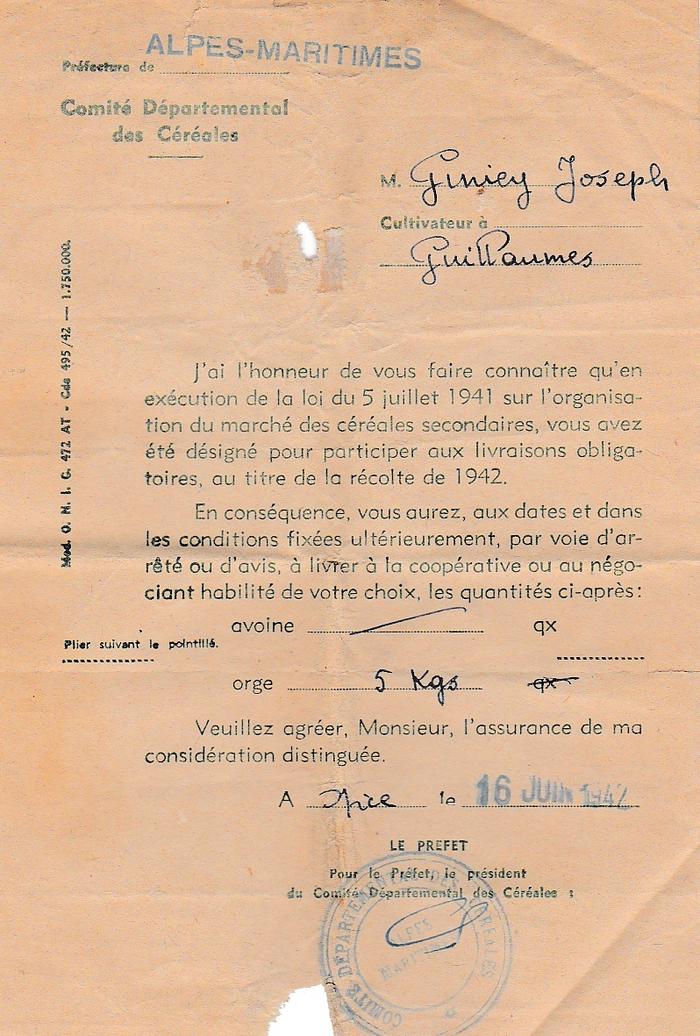 ALPES-MARITIMES
Préfecture de
Comité Départemental
des Céréales
M. Giniey Joseph
Cultivateur à
Guillaumes
Mod. O. N. I. C. 472 AT - Cde 495/42 — 1.750.000.
J'ai l'honneur de vous faire connaître qu'en
exécution de la loi du 5 juillet 1941 sur l'organisa-
tion du marché des céréales secondaires, vous avez
été désigné pour participer aux livraisons obliga-
toires, au titre de la récolte de 1942.
En conséquence, vous aurez, aux dates et dans
les conditions fixées ultérieurement, par voie d'ar-
rêté ou d'avis, à livrer à la coopérative ou au négo-
ciant habilité de votre choix, les quantités ci-après :
avoine qx
Plier suivant le pointillé.
orge 5 Kgs qx
Veuillez agréer, Monsieur, l'assurance de ma
considération distinguée.
A Nice le 16 JUIN 1942
LE PREFET
Pour le Préfet, le président
du Comité Départemental des Céréales :
COMITÉ DÉPARTEMENTAL DES CÉRÉALES
ALPES
MARITIMES